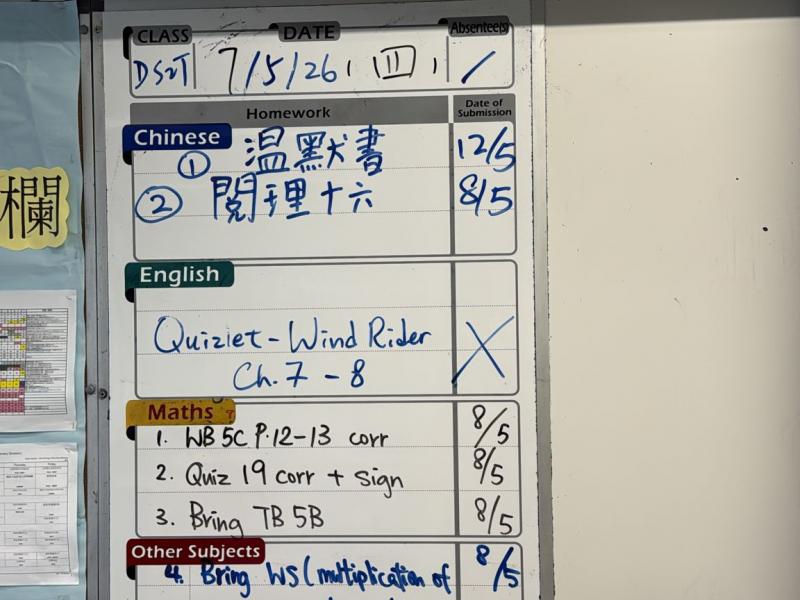 CLASS DATE Absentee(s)
DS2T 7/5/26 (四) /
Homework Date of Submission
Chinese
① 溫默書 12/5
② 閱理十六 8/5
欄
English
Quizlet - Wind Rider
Ch. 7 - 8
Maths
1. WB 5C P.12-13 corr 8/5
2. Quiz 19 corr + sign 8/5
3. Bring TB 5B 8/5
Other Subjects
4. Bring WS (multiplication of 8/5